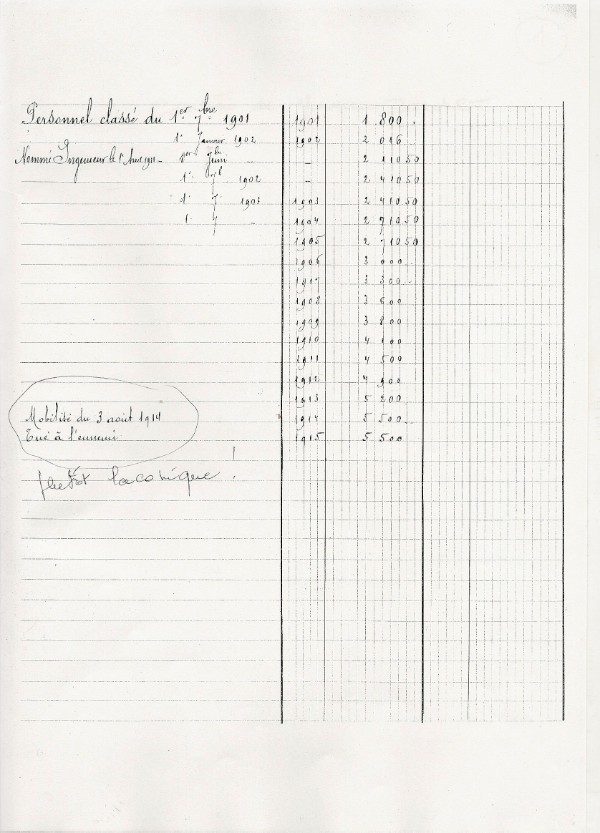 Personnel classé du 1er 7bre 1901 1901 1.800.
1er Janvier 1902 1902 2 016.
Nommé Ingénieur le 1er - Juin - 2 410 50
1er 7b 1902 - 2 410 50
1903 1903 2 410 50
1 - 1904 2 710 50
1905 2 710 50
1906 3 000
1907 3 300
1908 3 600
1909 3 800
1910 4 100
1911 4 500
1912 4 900
1913 5 200
Mobilité du 3 août 1914 1914 5 500
Tué à l'ennemi 1915 5 500
plutôt laconique !